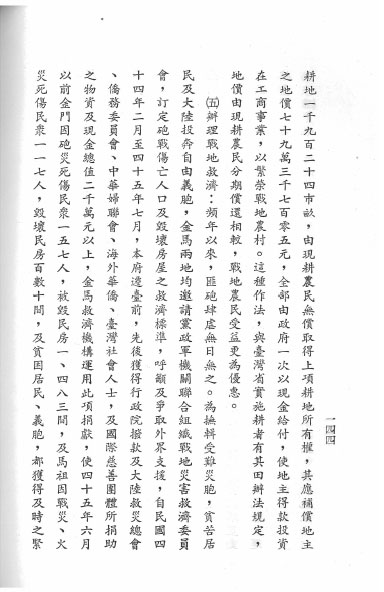 耕地一千九百二十四市畝,由現耕農民無償取得上項耕地所有權,其應補償地主
之地價七十九萬三千七百零五元,全部由政府一次以現金給付,使地主得款投資
在工商事業,以繁榮戰地農村。這種作法,與臺灣省實施耕者有其田辦法規定,
地價由現耕農民分期償還相較,戰地農民受益更為優惠。
㈤辦理戰地救濟:頻年以來,匪砲肆虐無日無之。為撫輯受難災胞,貧苦居
民及大陸投奔自由義胞,金馬兩地均邀請黨政軍機關聯合組織戰地災害救濟委員
會,訂定砲戰傷亡人口及毀壞房屋之救濟標準,呼籲及爭取外界支援,自民國四
十四年二月至四十五年七月,本府遷臺前,先後獲得行政院撥款及大陸救災總會
、僑務委員會、中華婦聯會、海外華僑、臺灣社會人士,及國際慈善團體所捐助
之物資及現金總值二千萬元以上,金馬救濟機構運用此項捐獻,使四十五年六月
以前金門因砲災死傷民衆一五七人,被毀民房一、四八三間,及馬祖因戰災、火
災死傷民衆一一七人,毀壞民房百數十間,及貧困居民、義胞,都獲得及時之緊
一四四